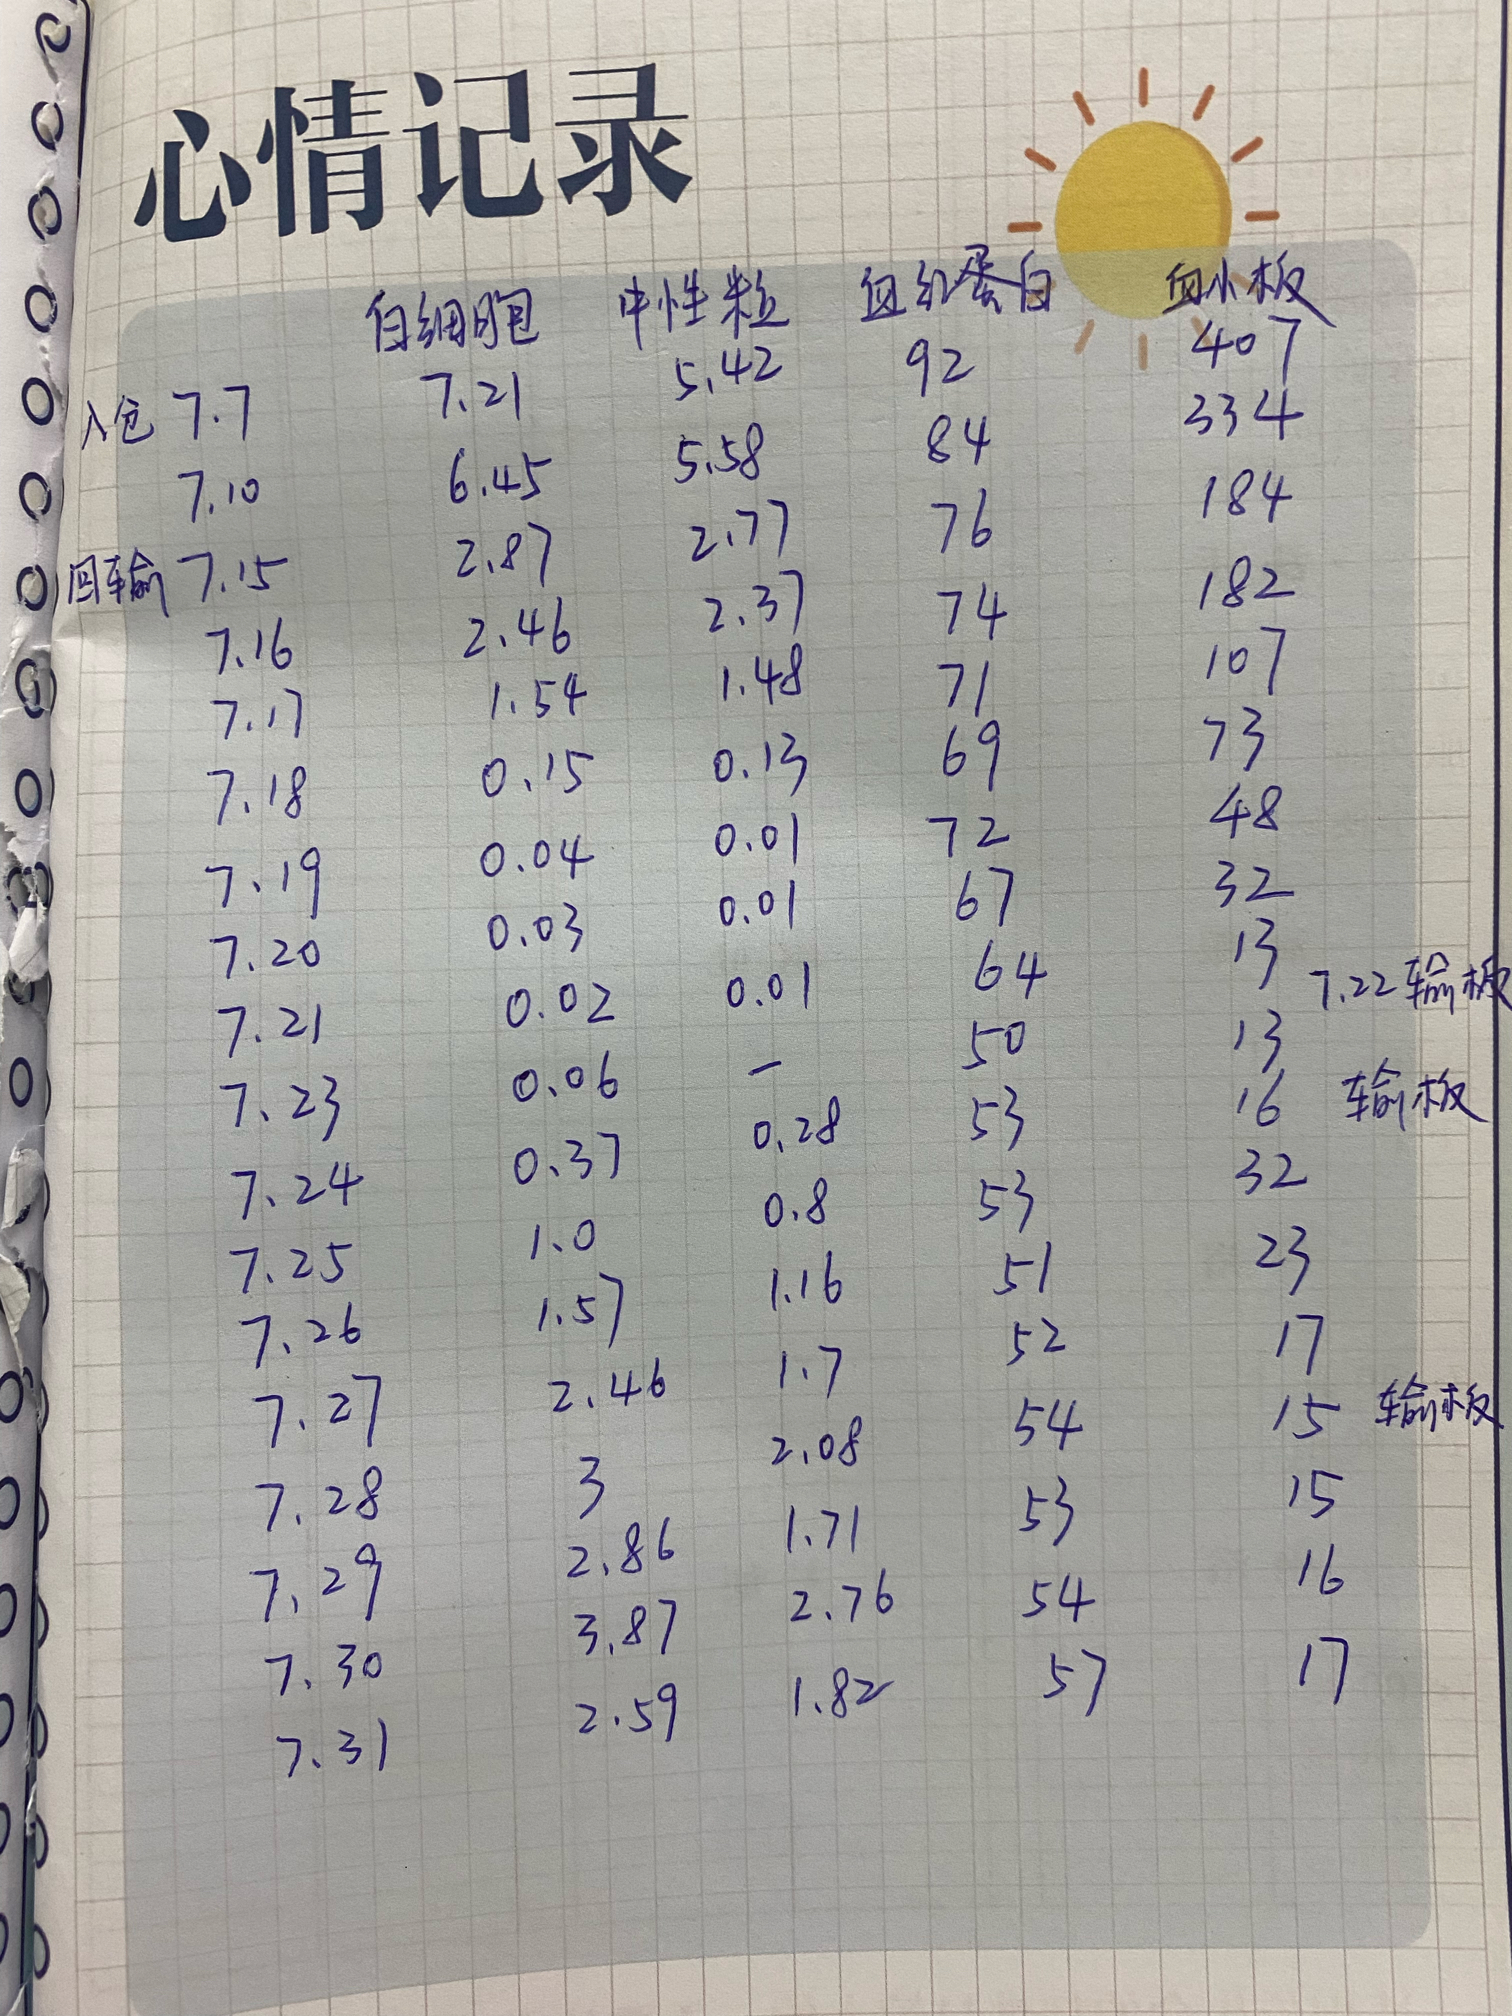 心情记录
白细胞 中性粒 血红蛋白 血小板
入仓 7.7 7.21 5.42 92 407
7.10 6.45 5.58 84 334
回输 7.15 2.87 2.77 76 184
7.16 2.46 2.37 74 182
7.17 1.54 1.48 71 107
7.18 0.15 0.13 69 73
7.19 0.04 0.01 72 48
7.20 0.03 0.01 67 32
7.21 0.02 0.01 64 13 7.22输板
7.23 0.06 - 50 13
7.24 0.37 0.28 53 16 输板
7.25 1.0 0.8 53 32
7.26 1.57 1.16 51 23
7.27 2.46 1.7 52 17
7.28 3 2.08 54 15 输板
7.29 2.86 1.71 53 15
7.30 3.87 2.76 54 16
7.31 2.59 1.82 57 17